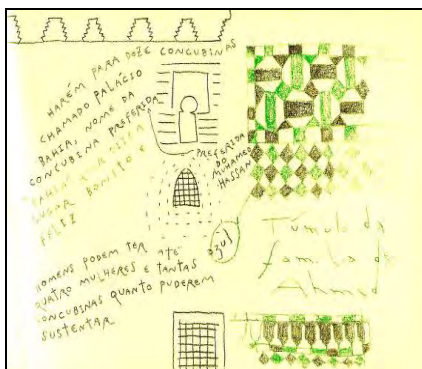 HARÉM PARA DOZE CONCUBINAS
CHAMADO PALÁCIO
BAHIA, NOME DA
CONCUBINA PREFERIDA
"BAHIA" QUER DIZER
LUGAR BONITO E
FELIZ
PREFERIDA
DO
MUHAMED
HASSAN
HOMENS PODEM TER ATÉ
QUATRO MULHERES E TANTAS
CONCUBINAS QUANTO PUDEREM
SUSTENTAR
azul
Túmulo da
família
Ahmed